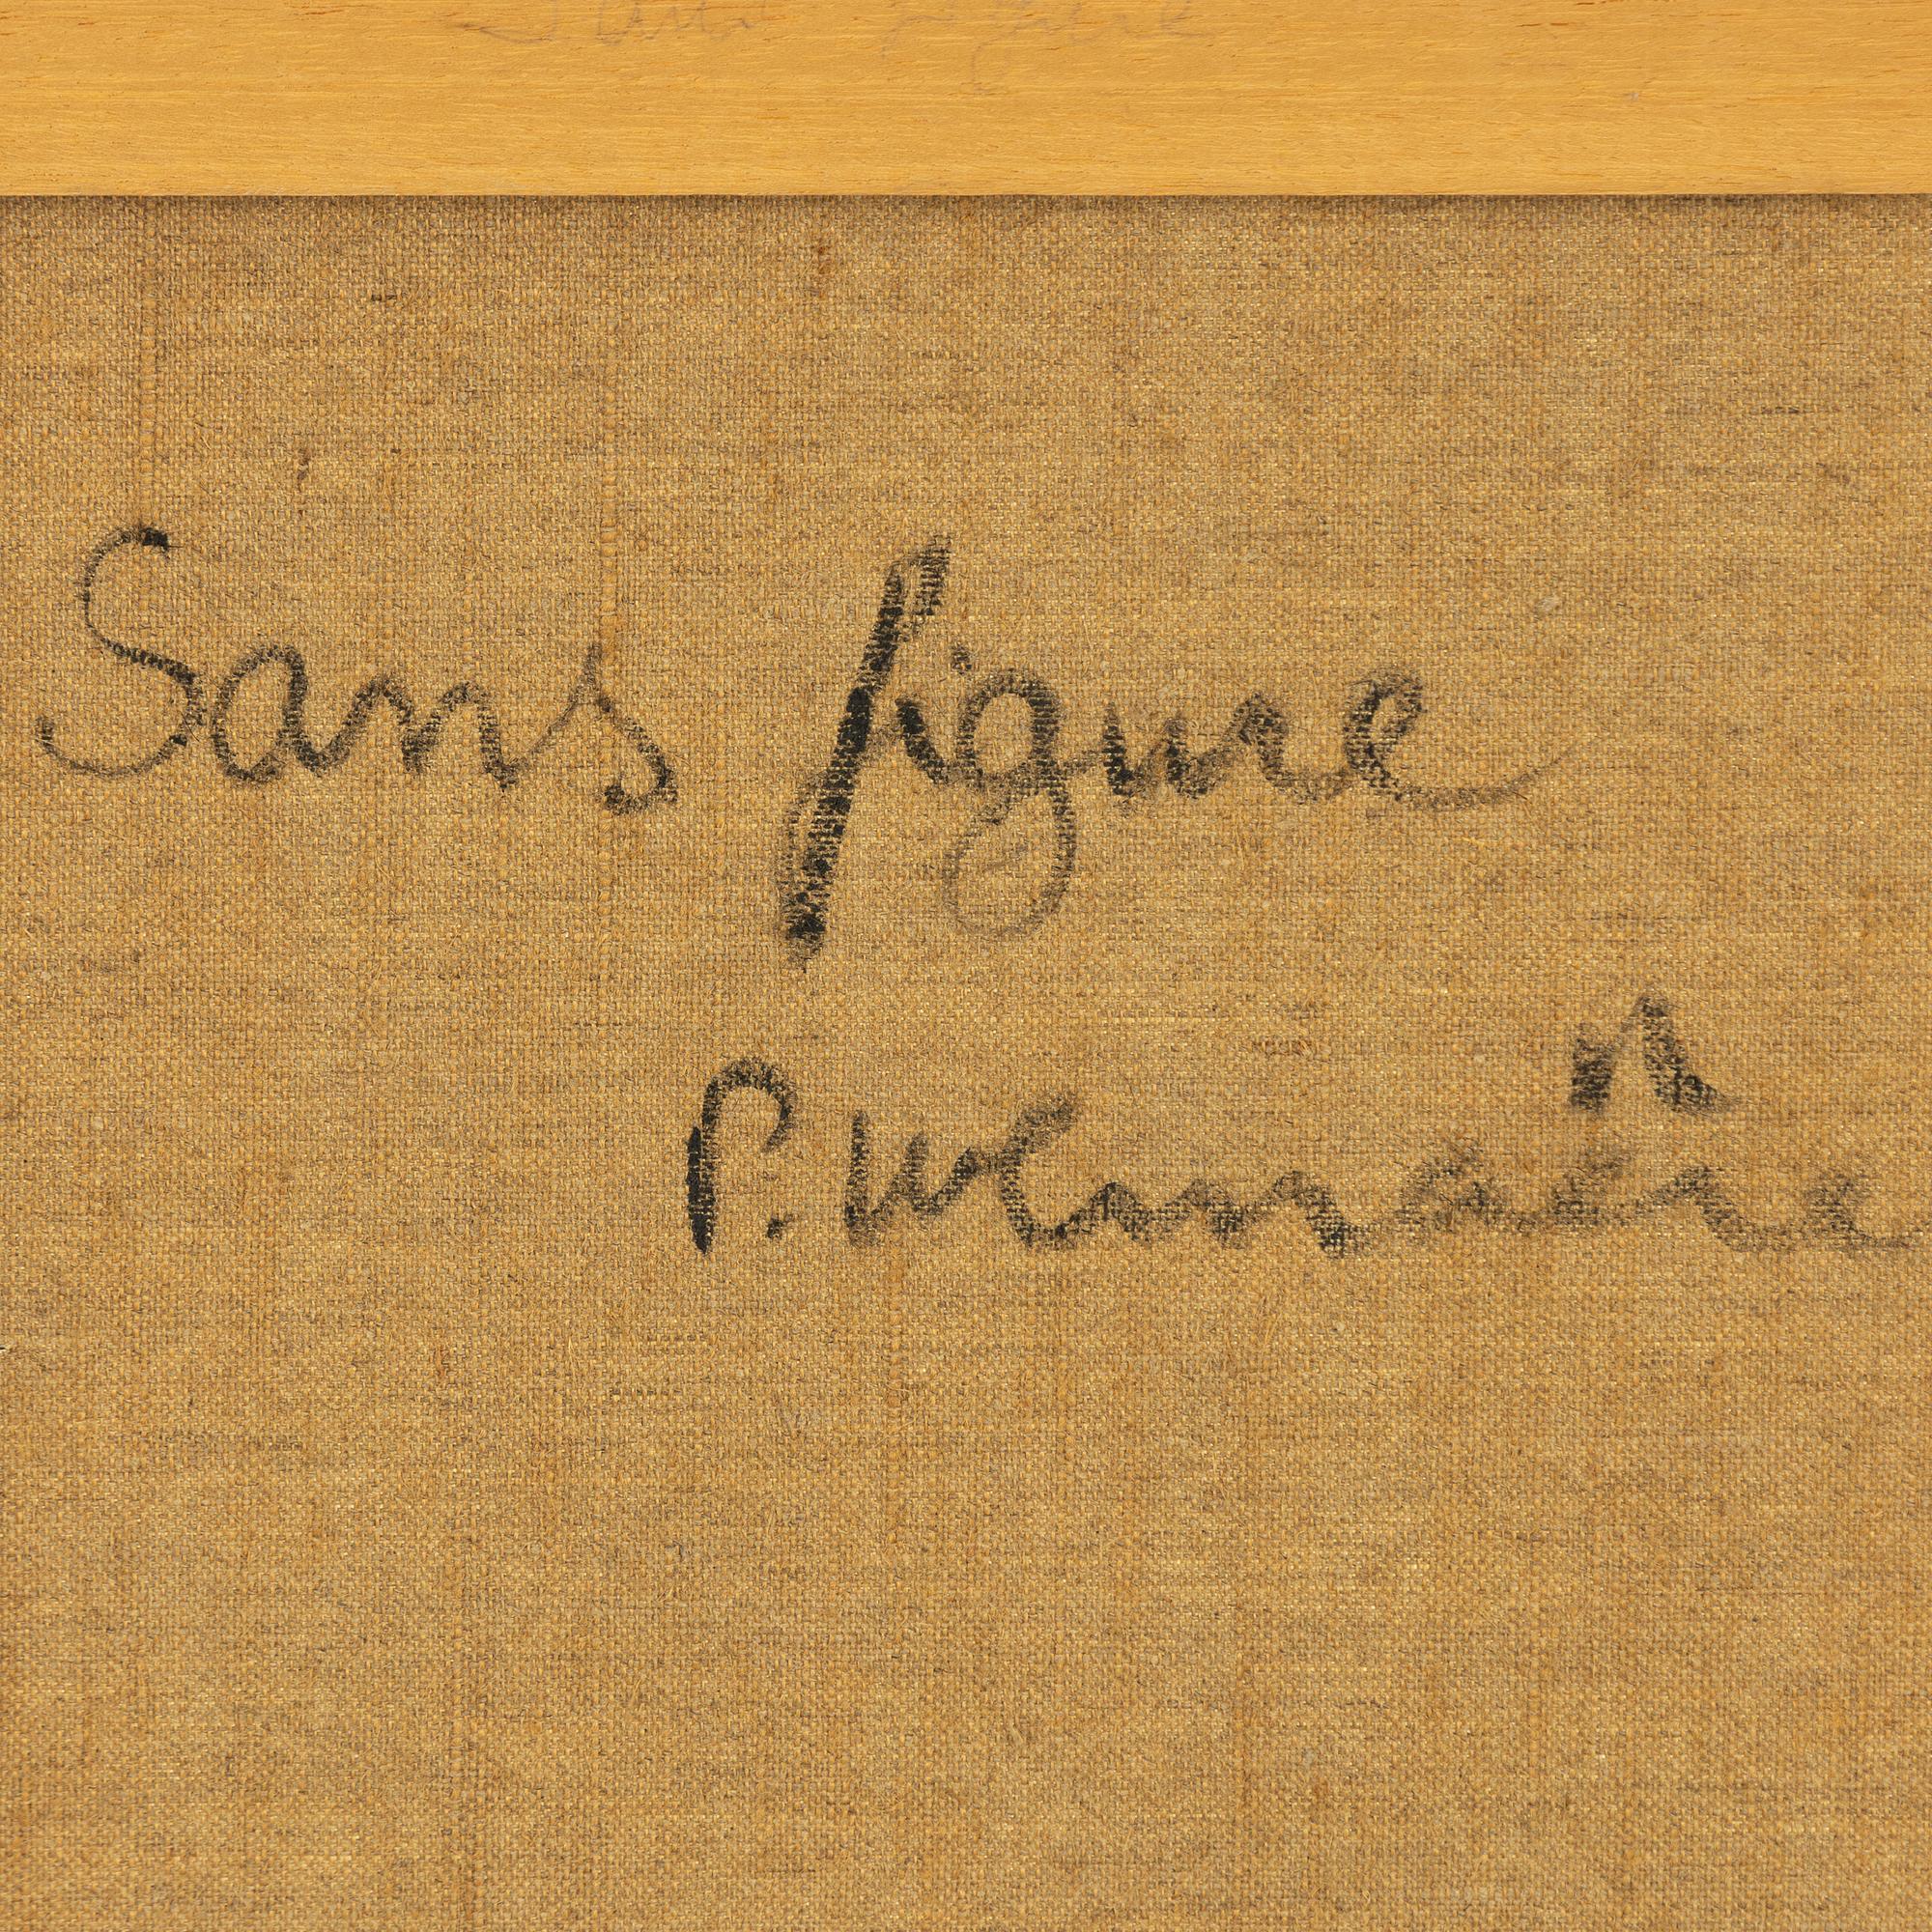 Sans figure
Sans figure
P. Wemaëre